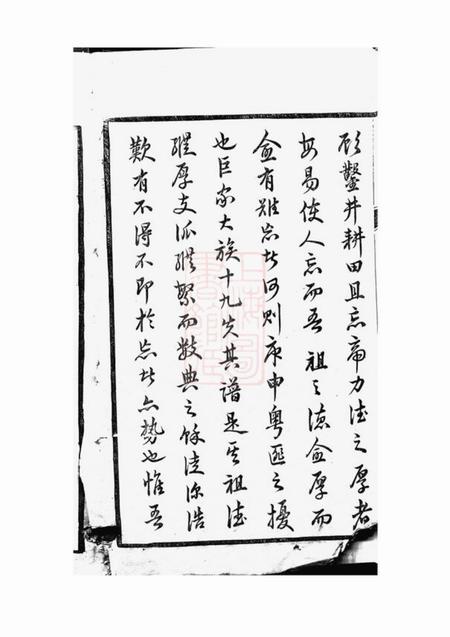 顧鑿井耕田且忘帝力德之厚者
每易使人忘而吾 祖之德愈厚而
愈有難忘者何則庚申粵匪之擾
也巨家大族十九失其譜是其祖德
雖厚支派雖繁而數典之餘徒深浩
歎有不得不即於忘者亦勢也惟吾